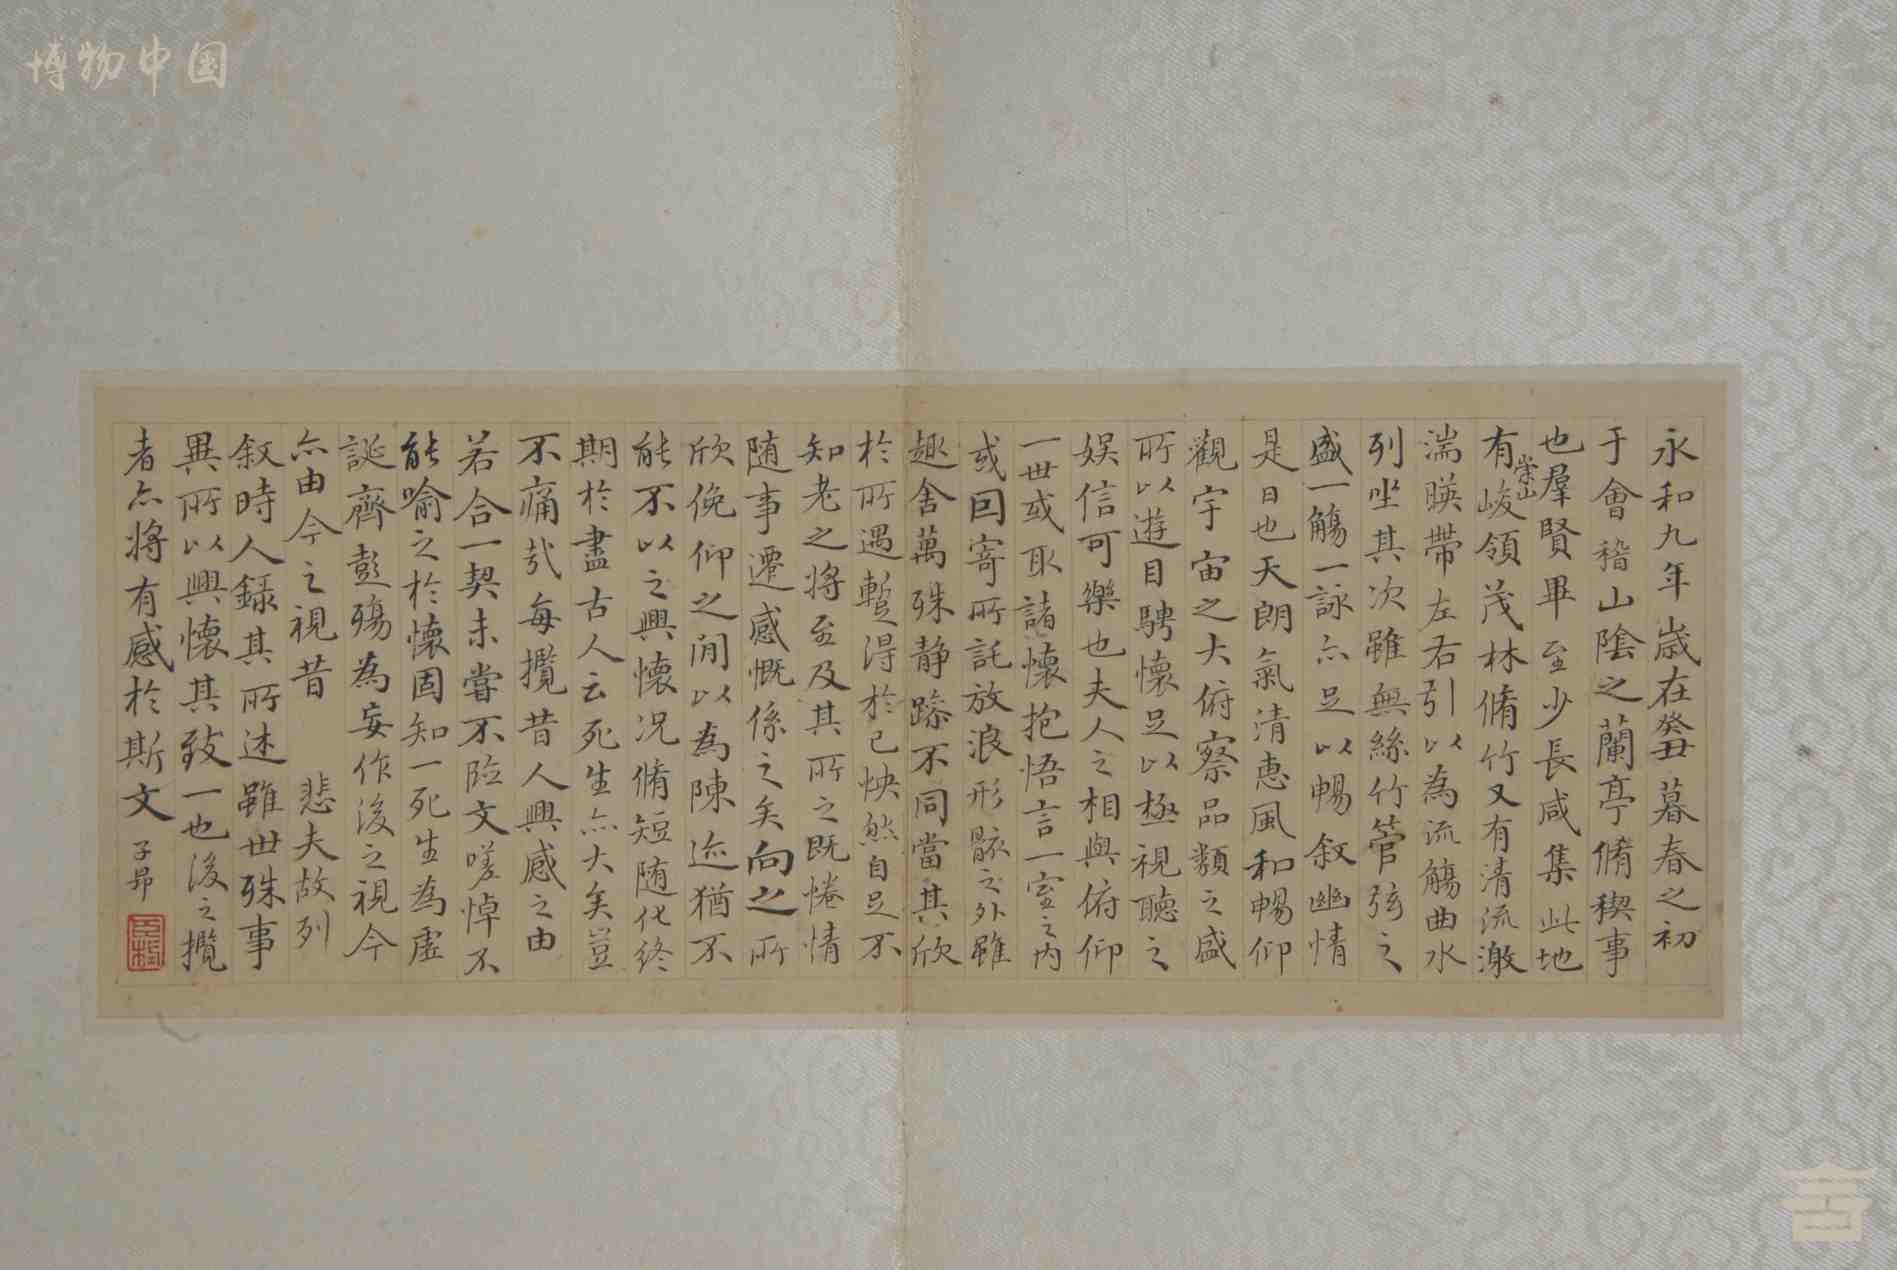 博物中国
永和九年歳在癸丑暮春之初
于會稽山陰之蘭亭脩稧事
也羣賢畢至少長咸集此地
有崇山峻領茂林脩竹又有清流激
湍暎帶左右引以為流觴曲水
列坐其次雖無絲竹管弦之
盛一觴一詠亦足以暢叙幽情
是日也天朗氣清惠風和暢仰
觀宇宙之大俯察品類之盛
所以遊目騁懷足以極視聽之
娱信可樂也夫人之相與俯仰
一世或取諸懷抱悟言一室之内
或囙寄所託放浪形骸之外雖
趣舍萬殊静躁不同當其欣
於所遇蹔得於己怏然自足不
知老之将至及其所之既惓情
随事遷感慨係之矣向之所
欣俛仰之閒以為陳迹猶不
能不以之興懷况脩短随化終
期於盡古人云死生亦大矣豈
不痛㢤每攬昔人興感之由
若合一契未嘗不臨文嗟悼不
能喻之於懷固知一死生為虚
誕齊彭殤為妄作後之視今
亦由今之視昔悲夫故列
叙時人録其所述雖世殊事
異所以興懷其致一也後之攬
者亦将有感於斯文
子昂